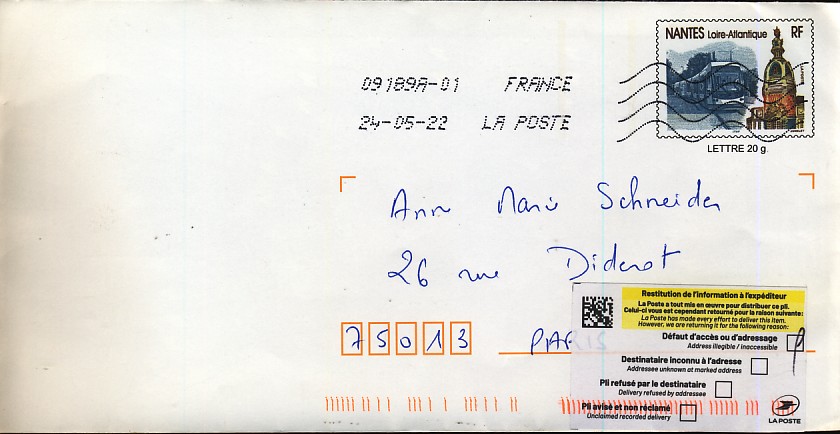 NANTES Loire-Atlantique RF
09189A-01 FRANCE
24-05-22 LA POSTE
LETTRE 20 g.
Anne Marie Schneider
26 rue Diderot
75013 PARIS
Restitution de l'information à l'expéditeur
La Poste a tout mis en œuvre pour distribuer ce pli.
Celui-ci vous est cependant retourné pour la raison suivante:
La Poste has made every effort to deliver this item.
However, we are returning it for the following reason:
Défaut d'accès ou d'adressage
Address illegible / inaccessible
Destinataire inconnu à l'adresse
Addressee unknown at marked address
Pli refusé par le destinataire
Delivery refused by addressee
Pli avisé et non réclamé
Unclaimed recorded delivery
LA POSTE